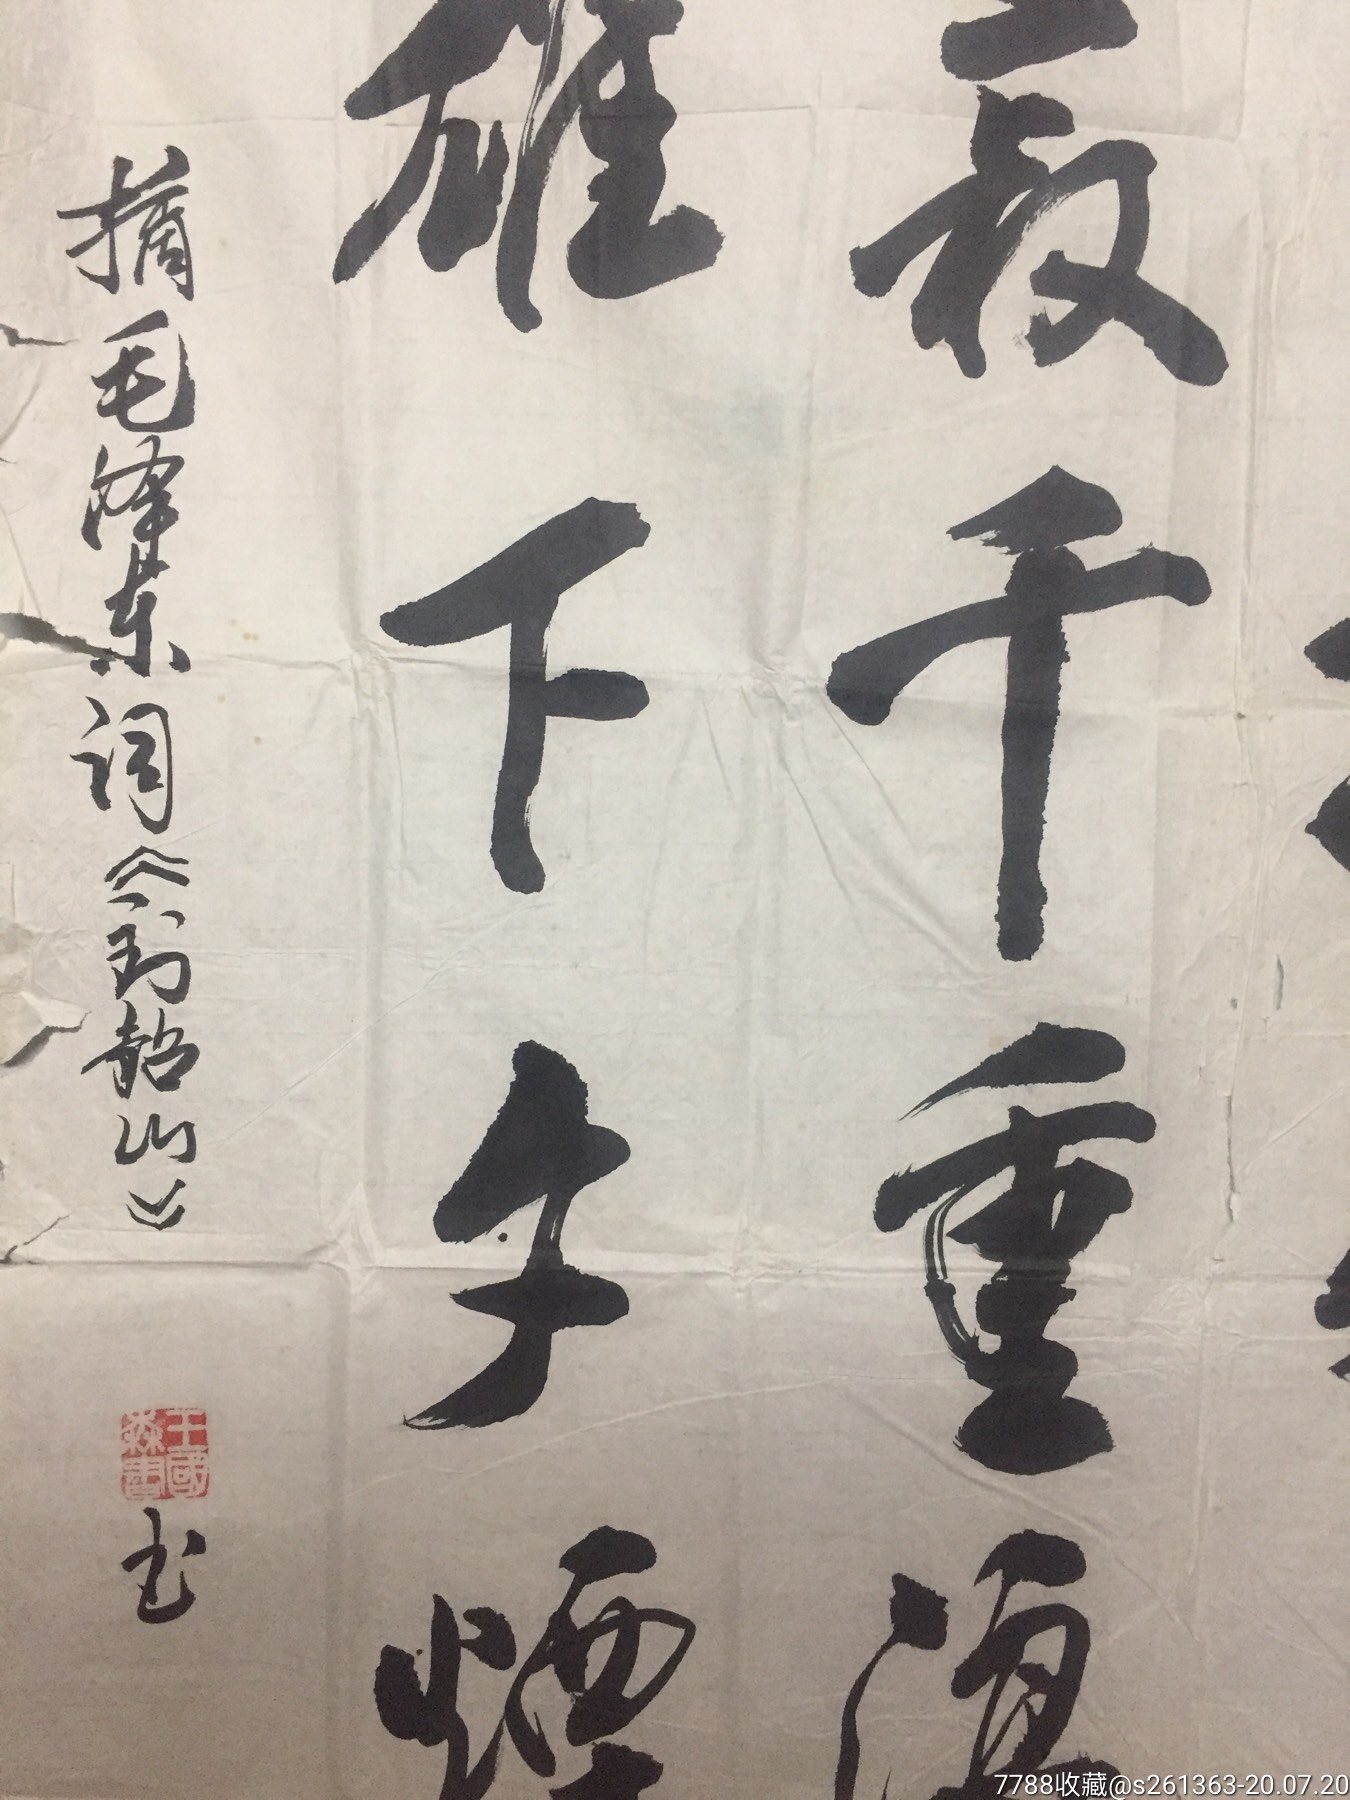 菽千重浪
雄下夕煙
摘毛泽东词《到韶山》
王國森書
书
7788收藏@s261363-20.07.20